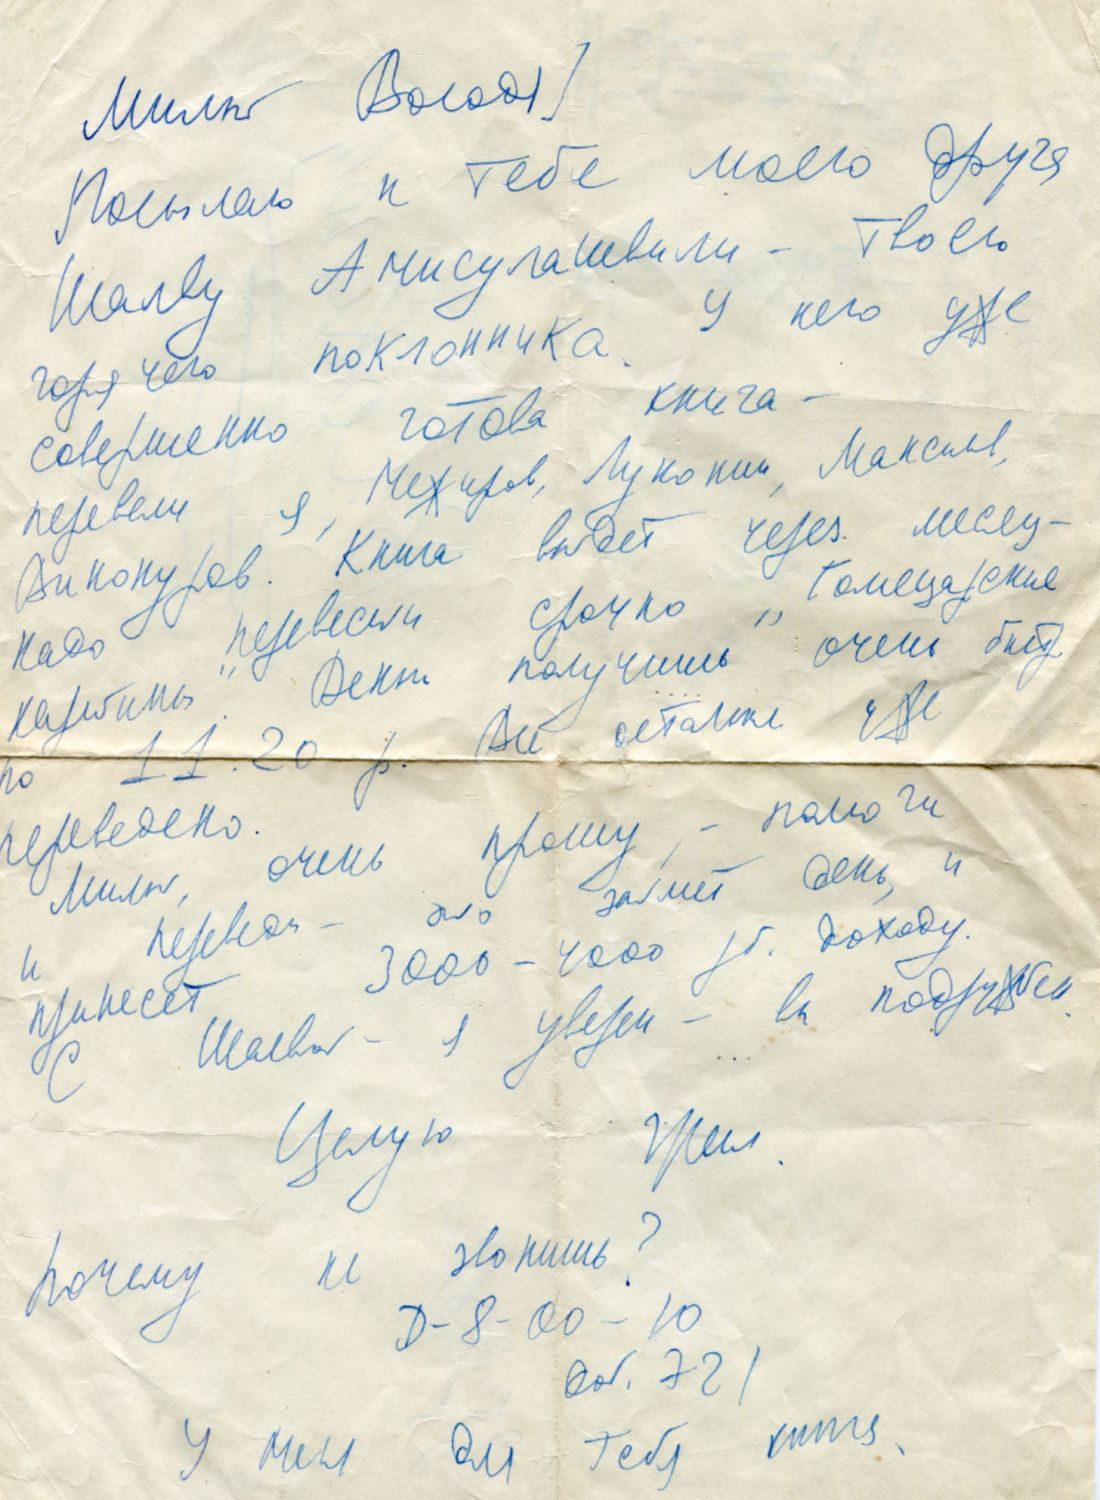 Милый Володя!
Посылаю к тебе моего друга
Шалву Амисулашвили – твоего
горячего поклонника. У него уже
совершенно готова книга –
перевели я, Межиров, Луконин, Максимов,
Винокуров. Книга выйдет через месяц –
надо перевести срочно „Гомецарские
картины". Деньги получишь очень быстр.
по 11.20 р. Все остальное уже
переведено.
Милый, очень прошу, – помоги
и переведи – это займет день, и
принесет 3000 – 4000 рб. доходу.
С Шалвой – я уверен – вы подружбен.
Целую Женя.
Почему не звонишь?
Д-8-00-10
доб. 721
У меня для тебя книга.